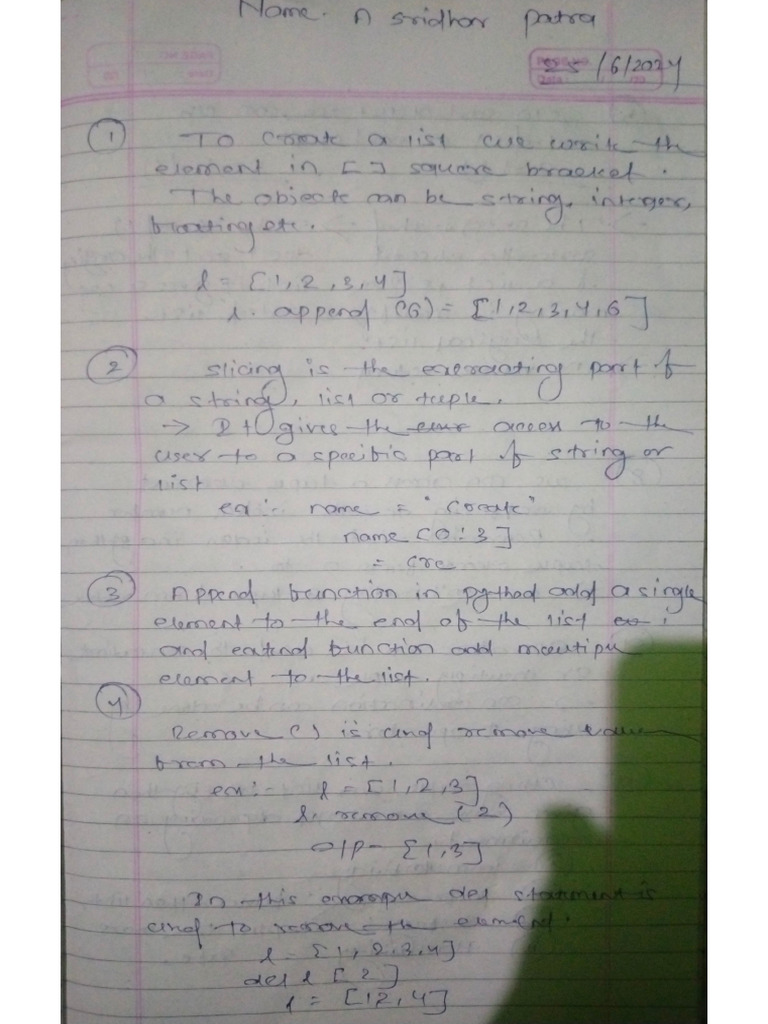 Name. A sridhar patra
25/6/2024
① To create a list we write the
element in [ ] square bracket.
The objects can be string, interger,
floating etc.
l = [1,2,3,4]
l. append (6) = [1,2,3,4,6]
② slicing is the part of
a string, list or tuple.
→ It gives the access to the
user to a specific part of string or
list
ex:- name = "Create"
name [0:3]
= cre
③ Append function in python add a single
element to the end of the list
and extend function add multiple
element to the list.
④
Remove () is used remove
from the list.
ex:- l = [1,2,3]
l. remove (2)
o/p- [1,3]
In this example del statment is
used to remove the element.
l = [1, 2,3,4]
del l [2]
l = [12,4]